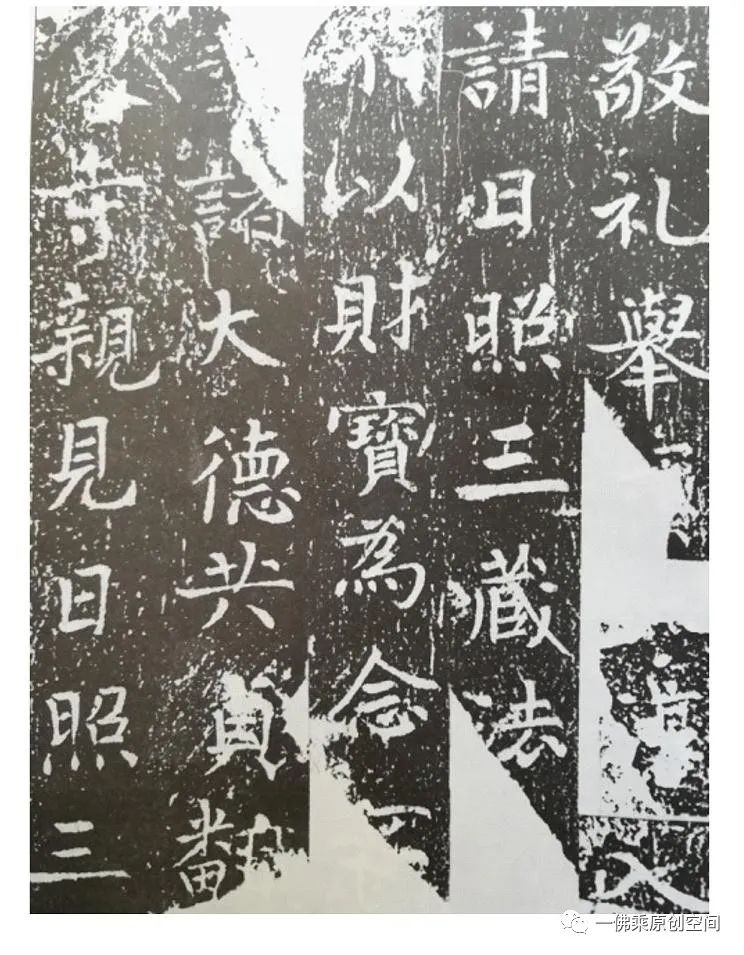 敬礼舉入
請日照三藏法
以財寶為念
諸大德共貞翻
寺親見日照三
一佛乘原创空间